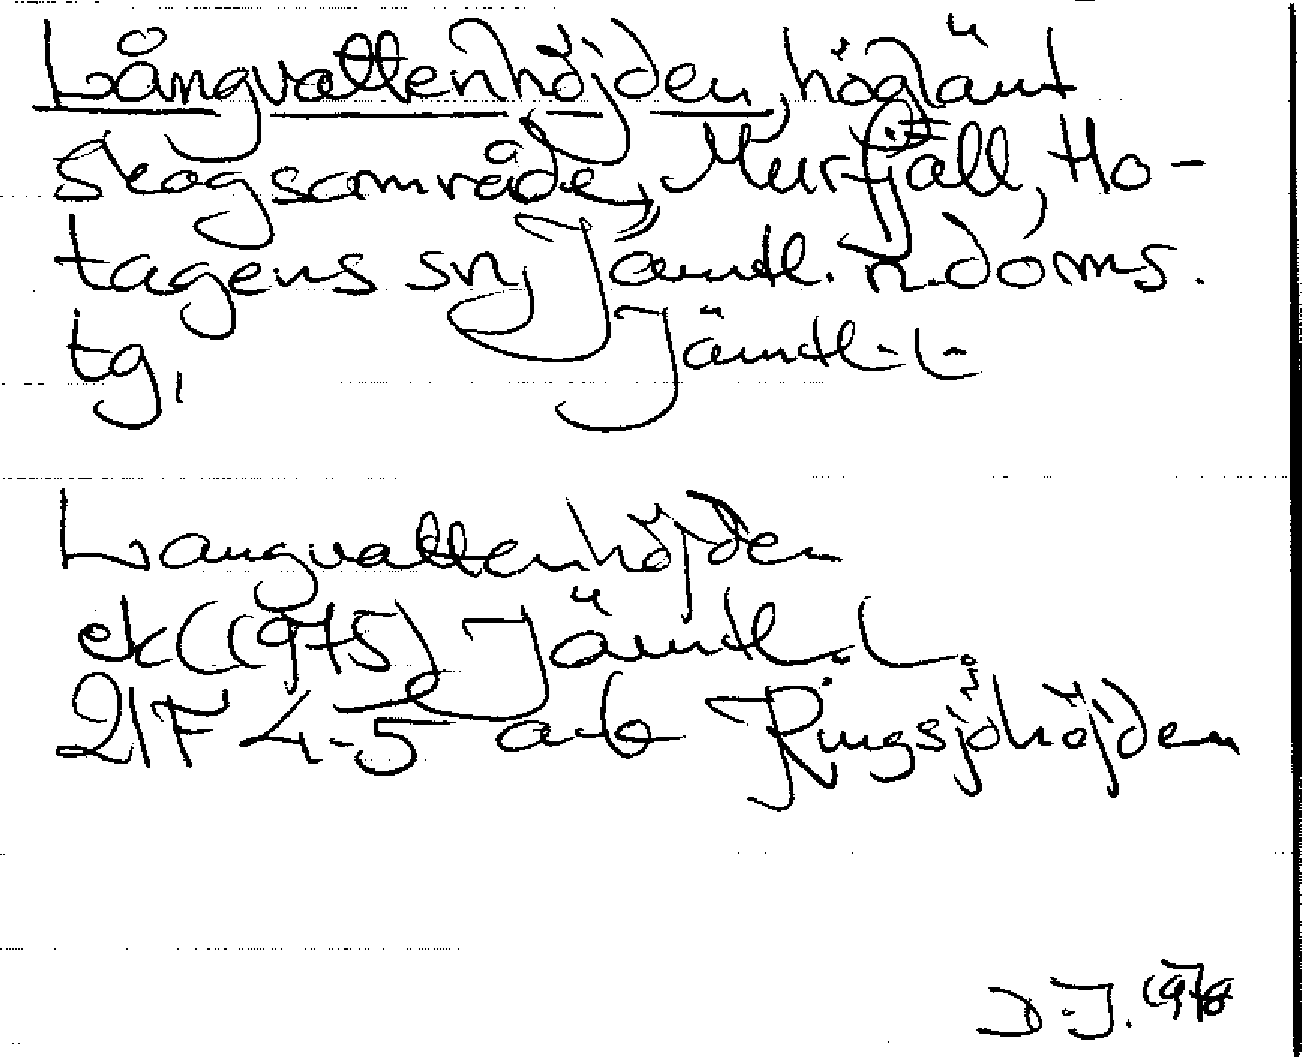 Långvattenhöjden, höglänt
skogsområde, Murfjäll, Ho-
tagens sn, Jämtl. n. doms.
tg, Jämtl. l.
Långvattenhöjden
ek (1975) Jämtl. L.
21F 4-5 a-b Ringsjöhöjden
D.J. 1978